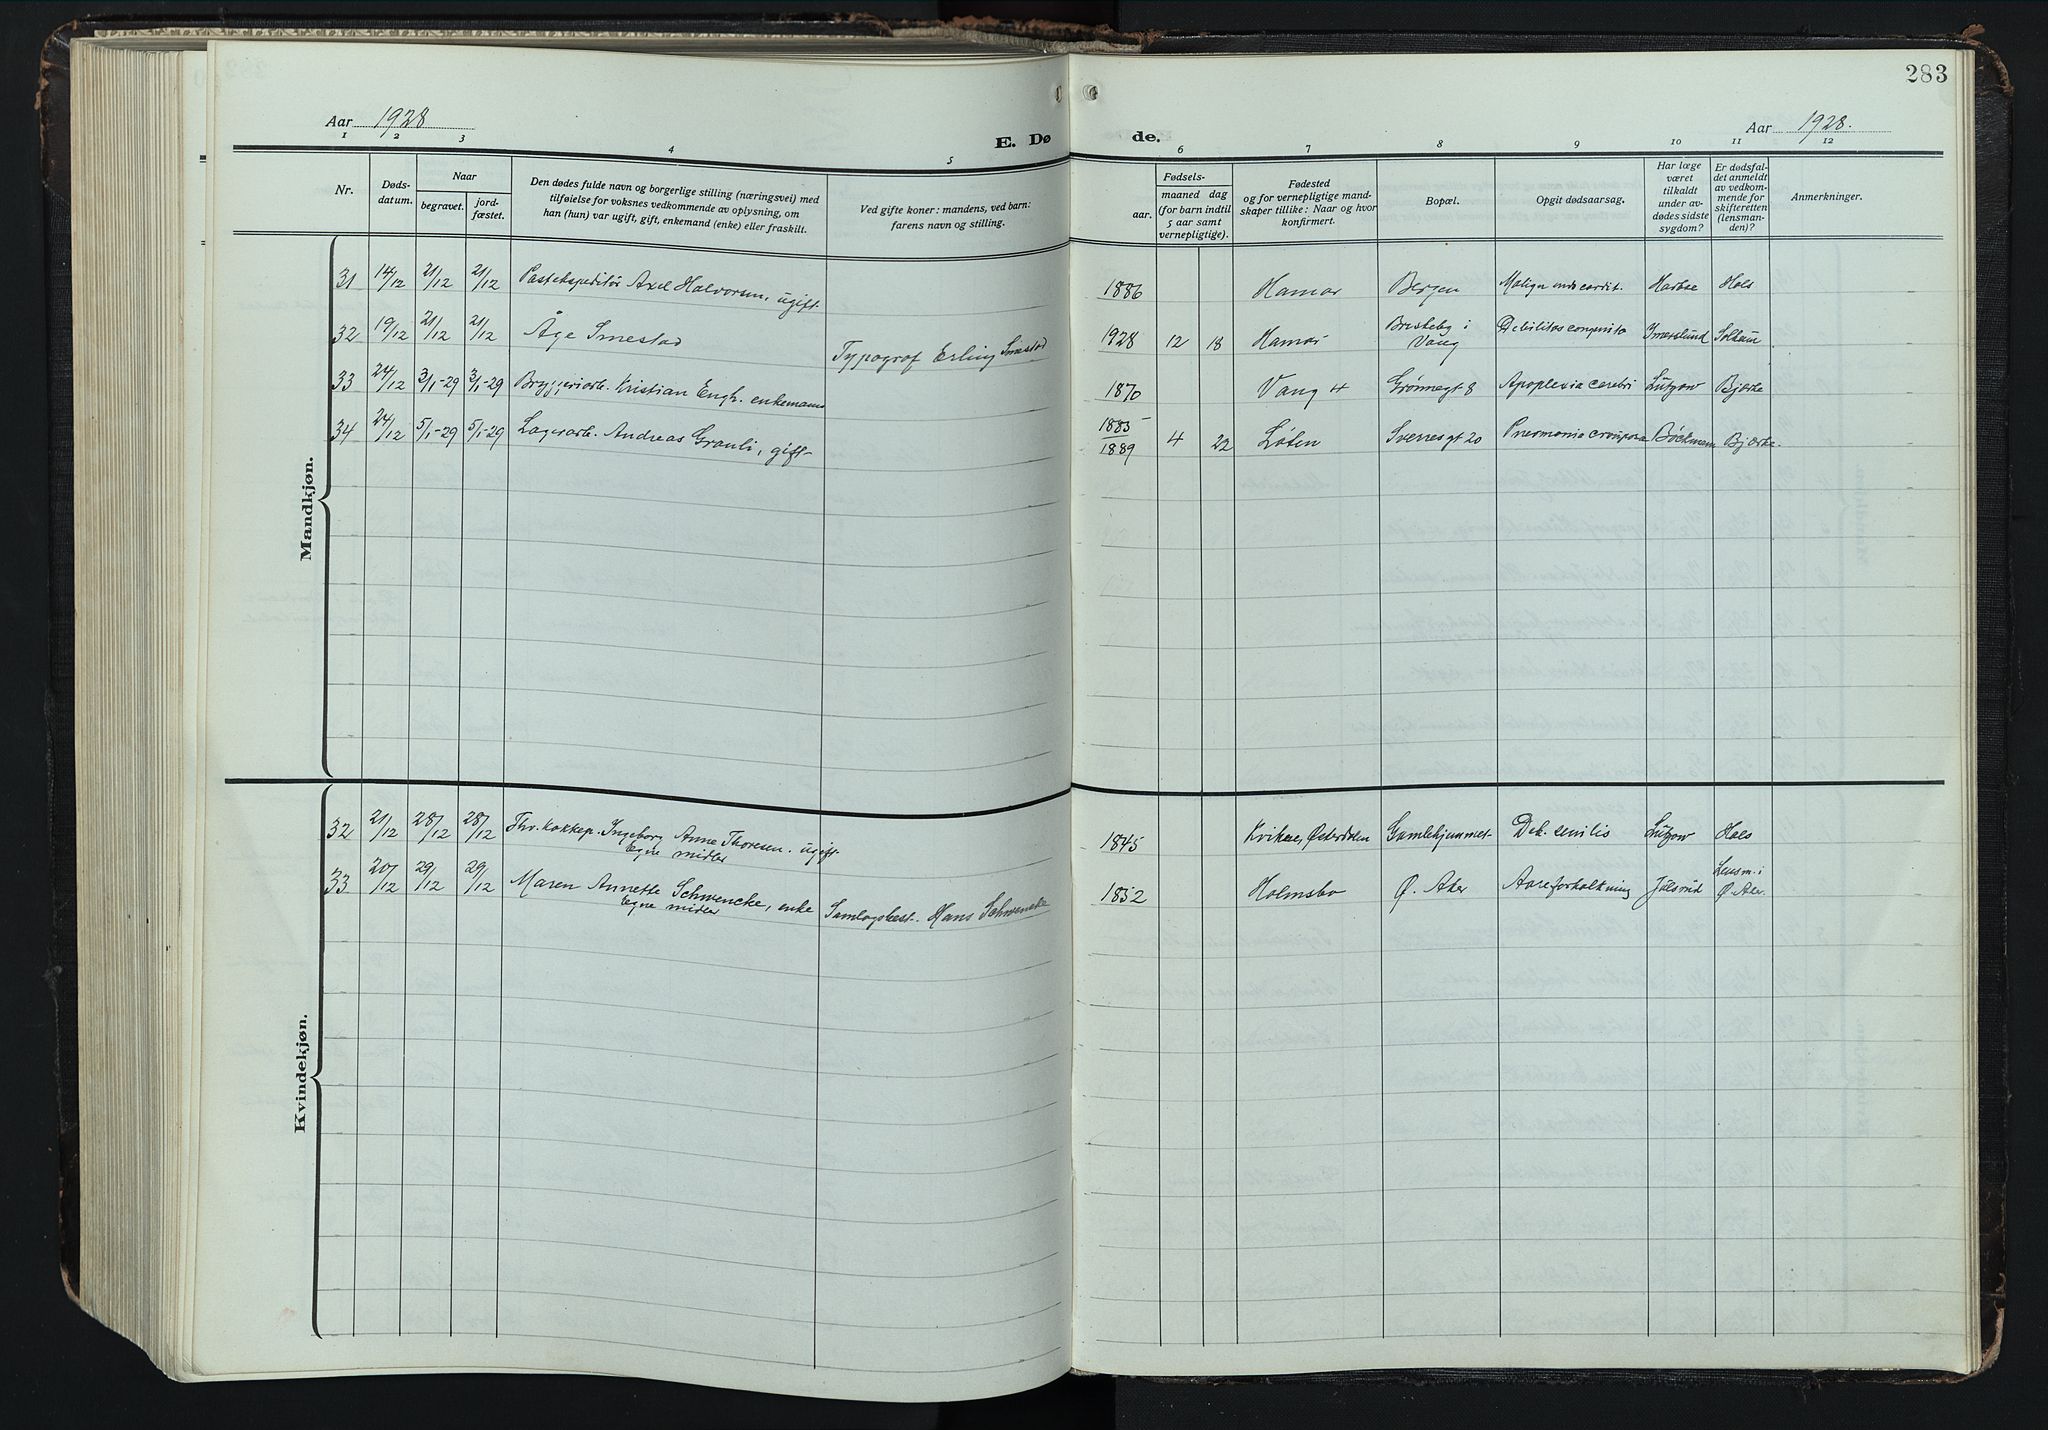 283
Aar 1928
E. Dø de.
Aar 1928.
1 2 3 4 5 6 7 8 9 10 11 12
Nr.
Døds-
datum.
Naar
begravet.
jord-
fæstet.
Den dødes fulde navn og borgerlige stilling (næringsvei) med
tilføielse for voksnes vedkommende av oplysning, om
han (hun) var ugift, gift, enkemand (enke) eller fraskilt.
Ved gifte koner: mandens, ved barn:
farens navn og stilling.
Fødsels-
aar.
maaned
dag
(for barn indtil
5 aar samt
vernepligtige).
Fødested
og for vernepligtige mand-
skaper tillike: Naar og hvor
konfirmert.
Bopæl.
Opgit dødsaarsag.
Har læge
været
tilkaldt
under av-
dødes sidste
sygdom?
Er dødsfal-
det anmeldt
av vedkom-
mende for
skifteretten
(lensman-
den)?
Anmerkninger.
Mandkjøn.
31 14/12 21/12 21/12 Postekspeditør Axel Halvorsen, ugift. 1886 Hamar Bergen Malign endocardit. Hals
32 19/12 21/12 21/12 Åge Smestad Typograf Erling Smestad 1928 12 18 Hamar Briskeby i Vang Debilitas congenita Imerslund Solheim
33 24/12 3/1-29 3/1-29 Bryggeriarb. Kristian Engh. enkemann 1870 Vang 4 Grønnegt 8 Apoplexia cerebri Lützow Bjerke
34 24/12 5/1-29 5/1-29 Lagerarb. Andreas Grauli, gift 1885 1889 4 22 Løten Svenesgt 20 Pneumonia crouposa Böckmann Bjerke
Kvindekjøn.
32 21/12 28/12 28/12 Fhv. kokkep. Ingeborg Anne Thoresen. ugift 1845 Kvikne, Østerdalen Gamlehjemmet Deb. senilis Lützow Hals
Egne midler
33 20/12 29/12 29/12 Maren Annette Schwencke, enke Samlagsbest. Hans Schwencke 1852 Holmsbo Ø. Aker Aareforkalkning Jølsrud Lensm. i Ø. Aker
Egne midler